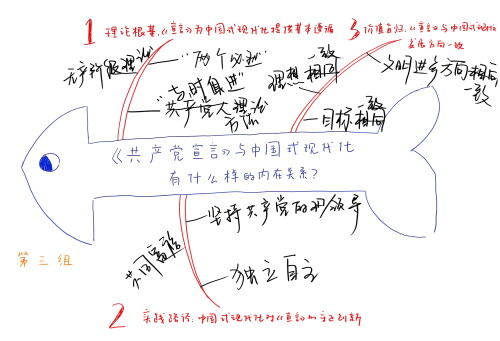 1 理论根基:《宣言》为中国式现代化提供基本遵循
无产阶级理论
"两个必然"
"与时俱进"
共产党人理论
方法
3 价值旨归:《宣言》与中国式现代化
发展方向一致
理想相同
一致
目标相同
一致
文明进步方向相同
一致
《共产党宣言》与中国式现代化
有什么样的内在关系?
第三组
坚持共产党的领导
共同富裕
独立自主
2 实践路径:中国式现代化对《宣言》的守正创新